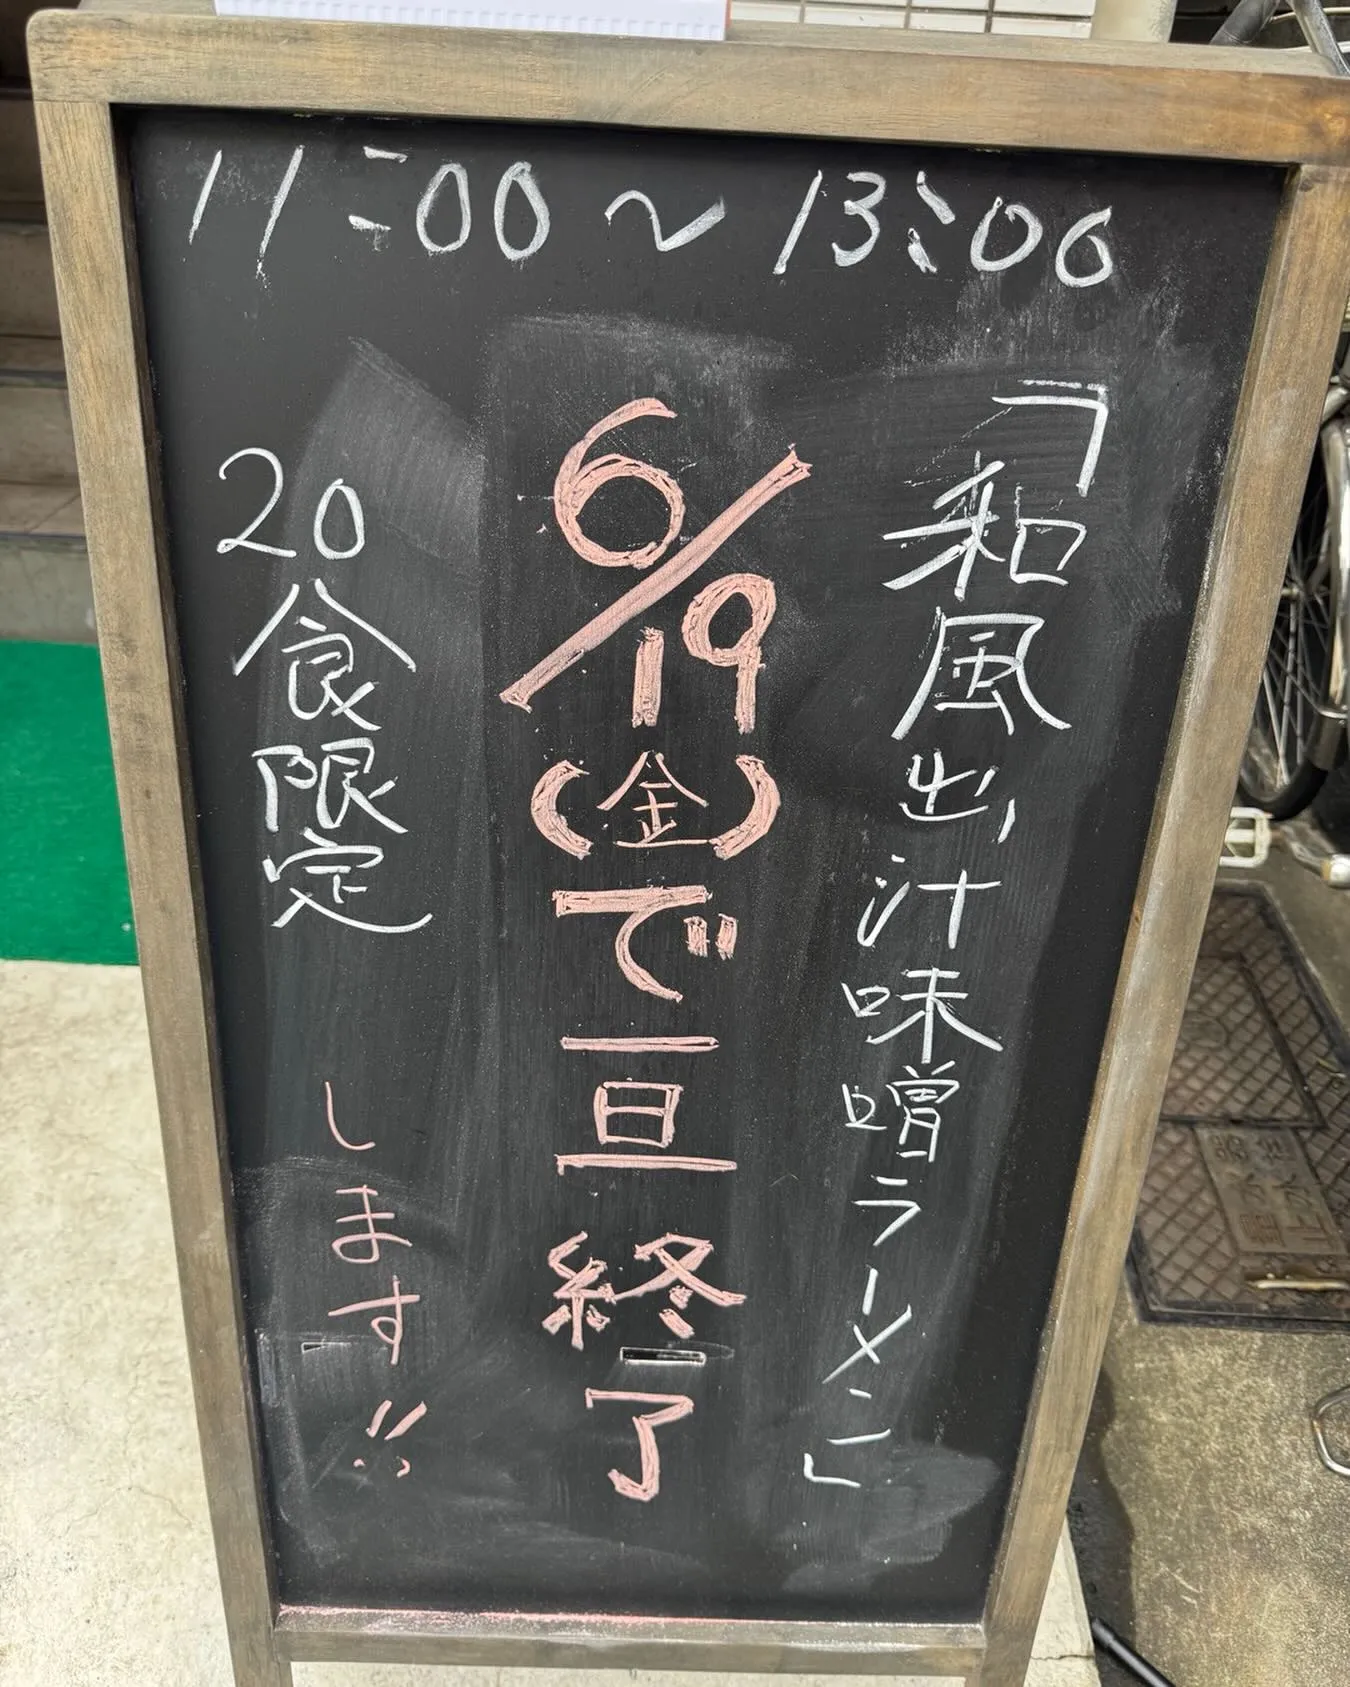 11:00～13:00
「和風出汁味噌ラーメン」
6/19(金)で一旦終了
します!!
20食限定